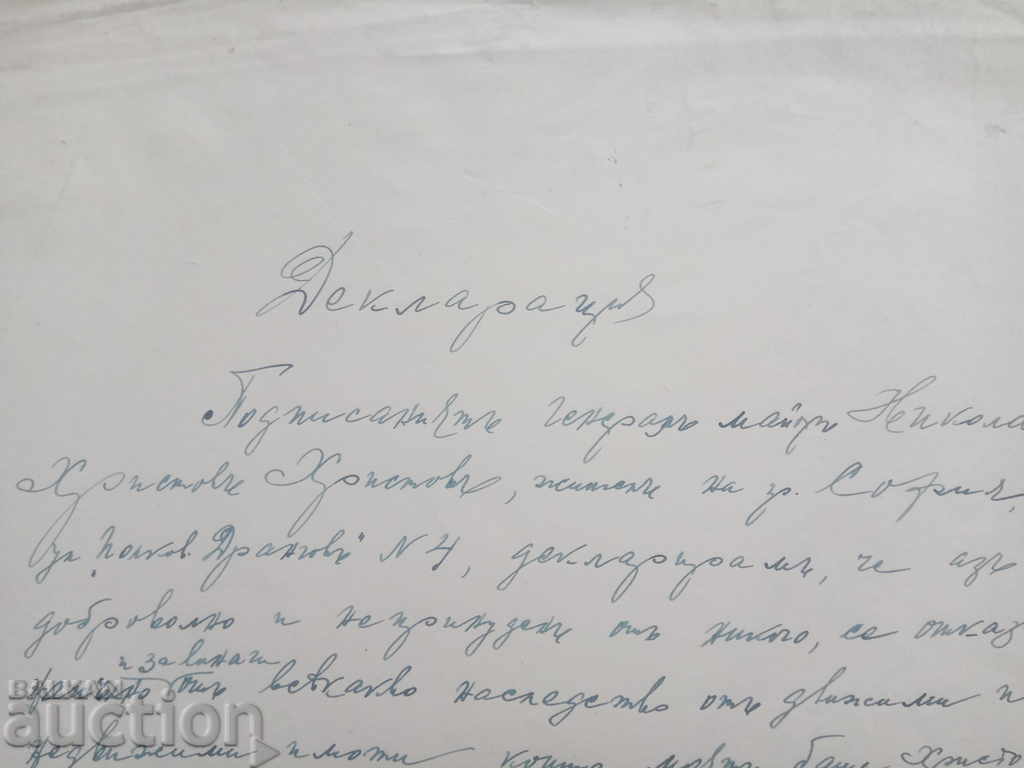 Декларация
Подписаниятъ генералъ майоръ Никола
Христовъ Христовъ, житель на гр. София,
ул. "Полков. Дранговъ" N 4, декларирамъ, че азъ
доброволно и непринуденъ отъ никого, се отказ
и завинаги
отъ всѣкакво наследство отъ движими и
недвижими имоти които моятъ баща Христо
auction